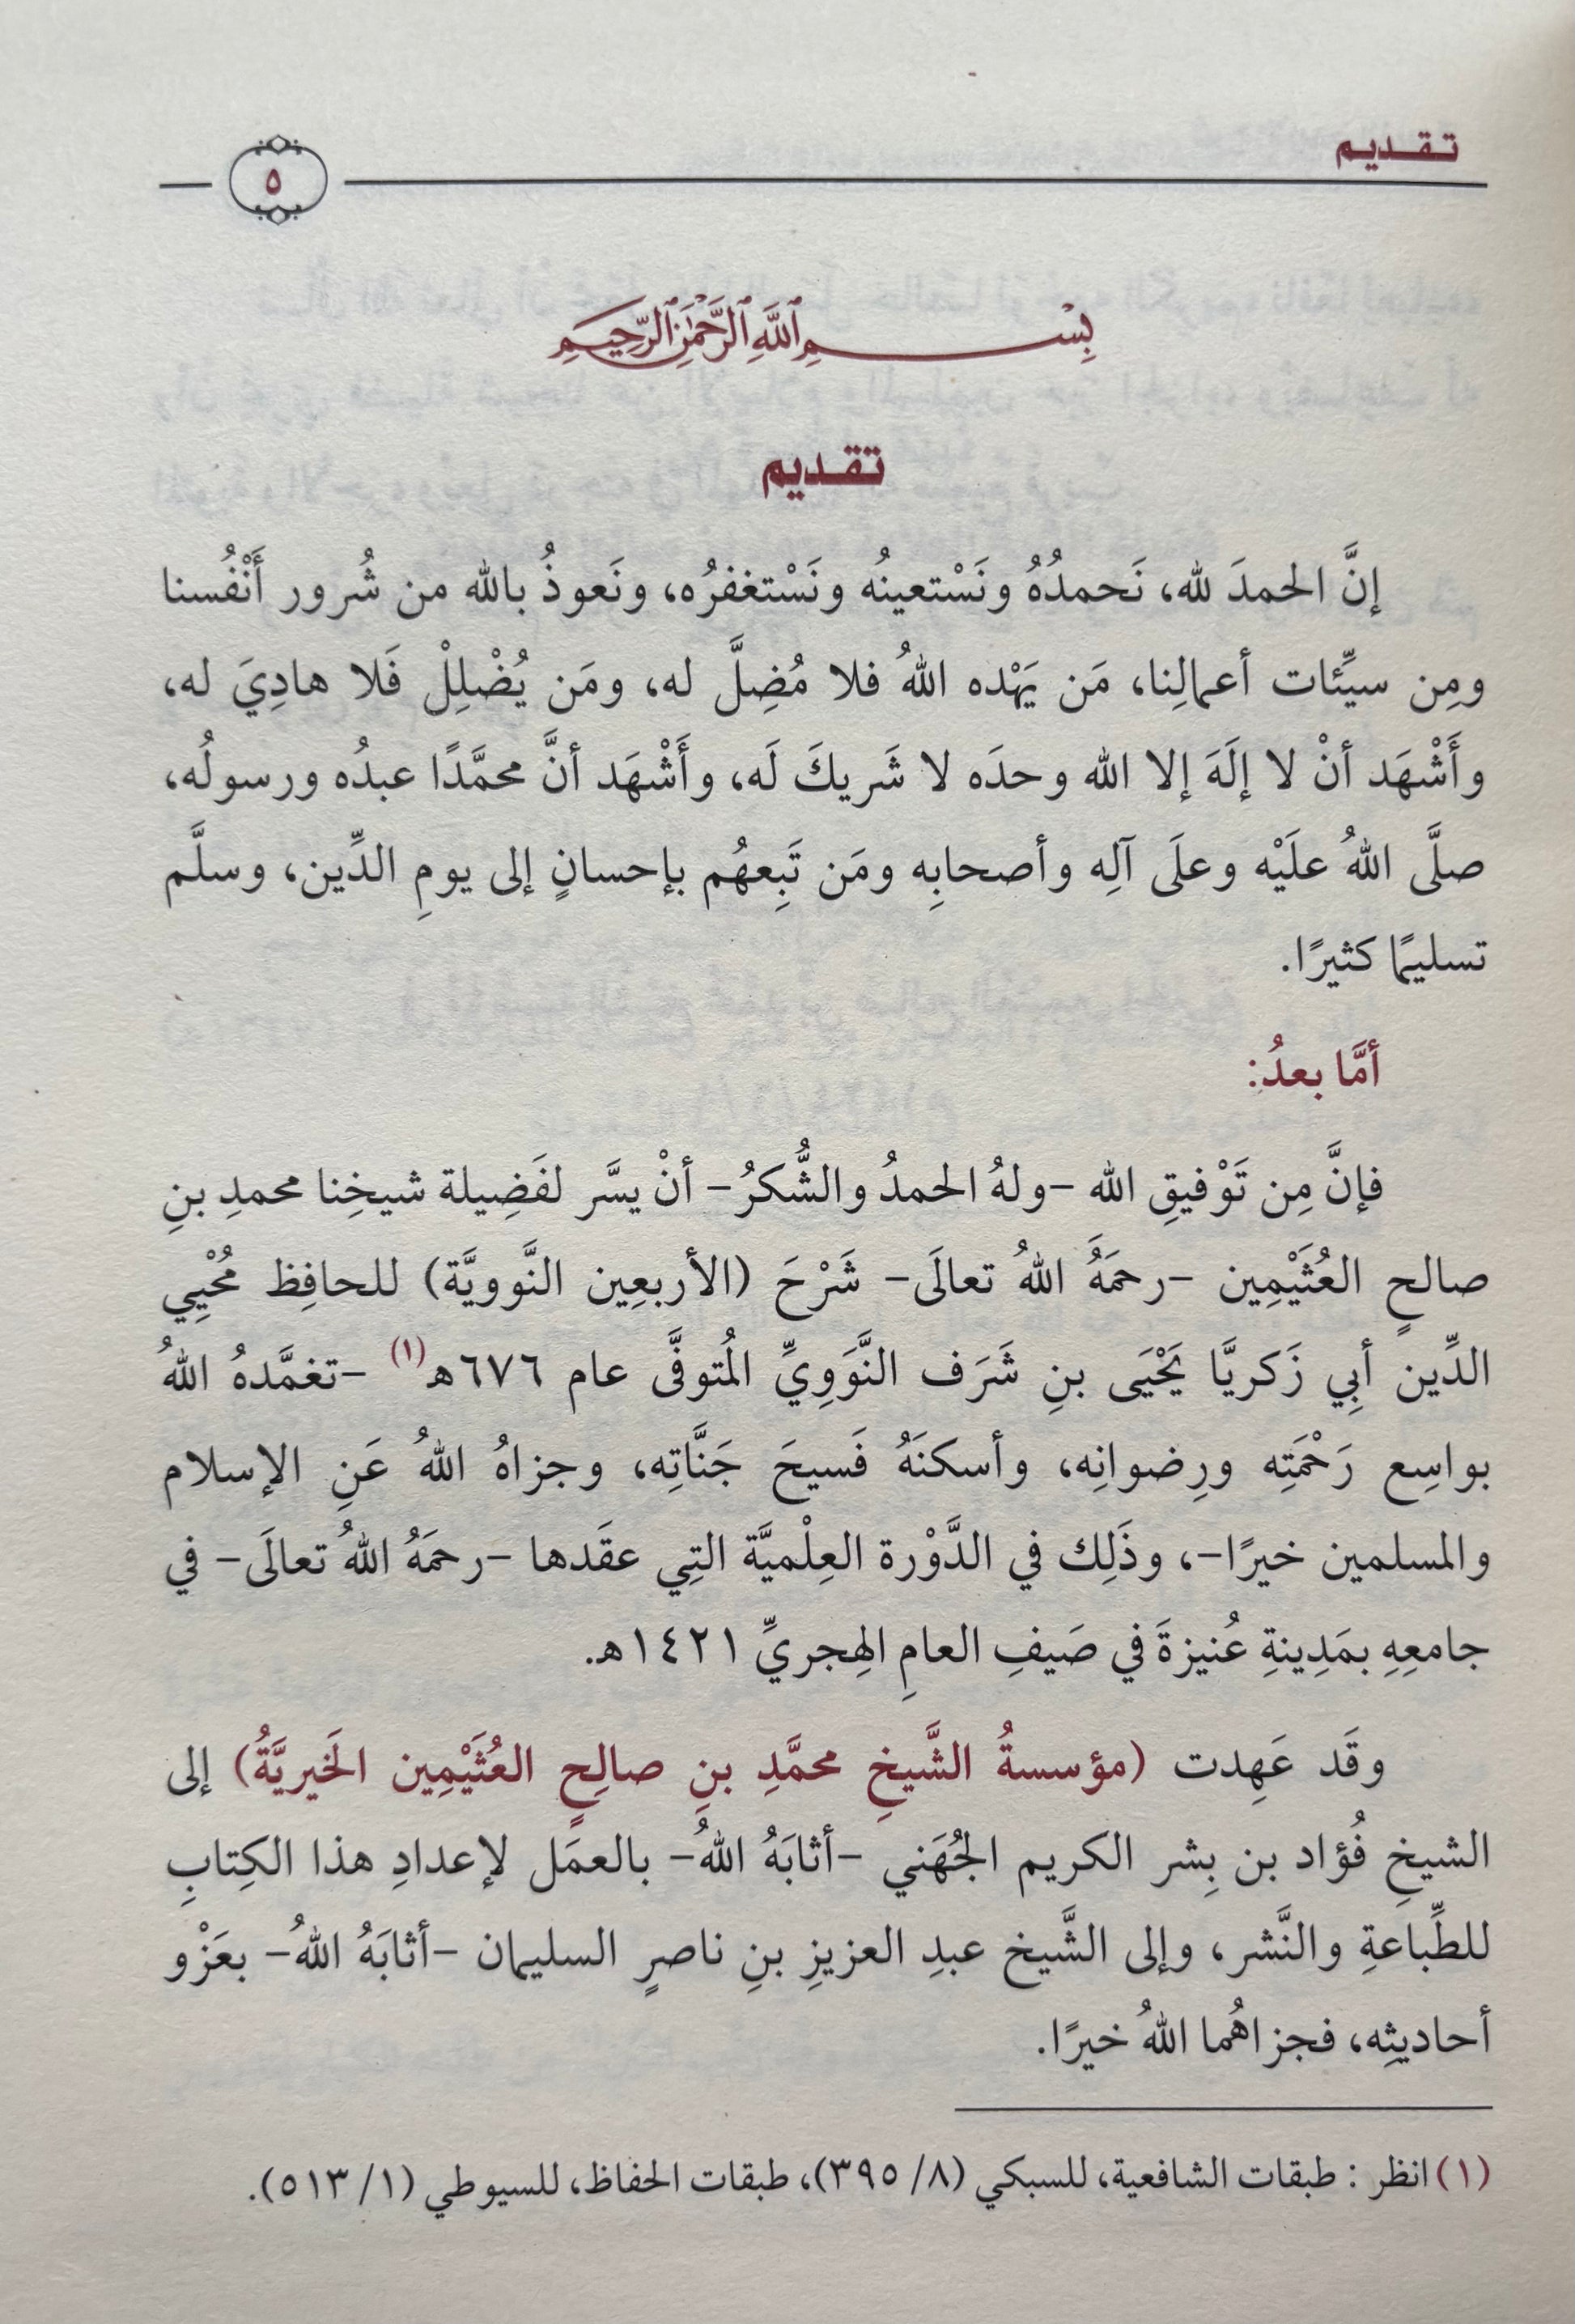 تقديم
٥
بِسْمِ ٱللَّهِ ٱلرَّحْمَٰنِ ٱلرَّحِيمِ
تقديم
إنَّ الحمدَ لله، نَحمدُهُ ونَسْتعينُه ونَسْتغفرُه، ونَعوذُ بالله من شُرور أَنْفُسنا
ومِن سيِّئات أعمالِنا، مَن يَهْده اللهُ فلا مُضِلَّ له، ومَن يُضْلِلْ فَلا هادِيَ له،
وأَشْهَد أنْ لا إلَهَ إلا الله وحدَه لا شَريكَ لَه، وأَشْهَد أنَّ محمَّدًا عبدُه ورسولُه،
صلَّى اللهُ علَيْه وعلَى آلِه وأصحابِه ومَن تَبِعهُم بإحسانٍ إلى يومِ الدِّين، وسلَّم
تسليمًا كثيرًا.
أمَّا بعدُ:
فإنَّ مِن تَوْفيقِ الله -ولهُ الحمدُ والشُّكرُ- أنْ يسَّر لفَضِيلة شيخِنا محمدِ بنِ
صالحٍ العُثَيْمِين -رحمَهُ اللهُ تعالَى- شَرْحَ (الأربعِين النَّوويَّة) للحافِظ مُحْيِي
الدِّين أبِي زَكريَّا يَحْيَى بنِ شَرَف النَّوَوِيِّ المُتوفَّى عام ٦٧٦هـ(١) -تغمَّدهُ اللهُ
بواسِع رَحْمَتِه ورِضوانِه، وأسكنَهُ فَسيحَ جَنَّاتِه، وجزاهُ اللهُ عَنِ الإسلام
والمسلمين خيرًا-، وذَلِك في الدَّوْرة العِلْميَّة التِي عقَدها -رحمَهُ اللهُ تعالَى- في
جامعِهِ بمَدِينةِ عُنيزةَ في صَيفِ العامِ الهِجريِّ ١٤٢١هـ.
وقَد عَهِدت (مؤسسةُ الشَّيخِ محمَّدِ بنِ صالِحٍ العُثَيْمِين الخَيريَّةُ) إلى
الشيخِ فُؤاد بن بِشر الكريم الجُهَني -أثابَهُ اللهُ- بالعمَل لإعدادِ هذا الكِتابِ
للطِّباعةِ والنَّشر، وإلى الشَّيخ عبدِ العزيزِ بنِ ناصرٍ السليمان -أثابَهُ اللهُ- بعَزْو
أحاديثِه، فجزاهُما اللهُ خيرًا.
(١) انظر : طبقات الشافعية، للسبكي (٨/ ٣٩٥)، طبقات الحفاظ، للسيوطي (١/ ٥١٣).